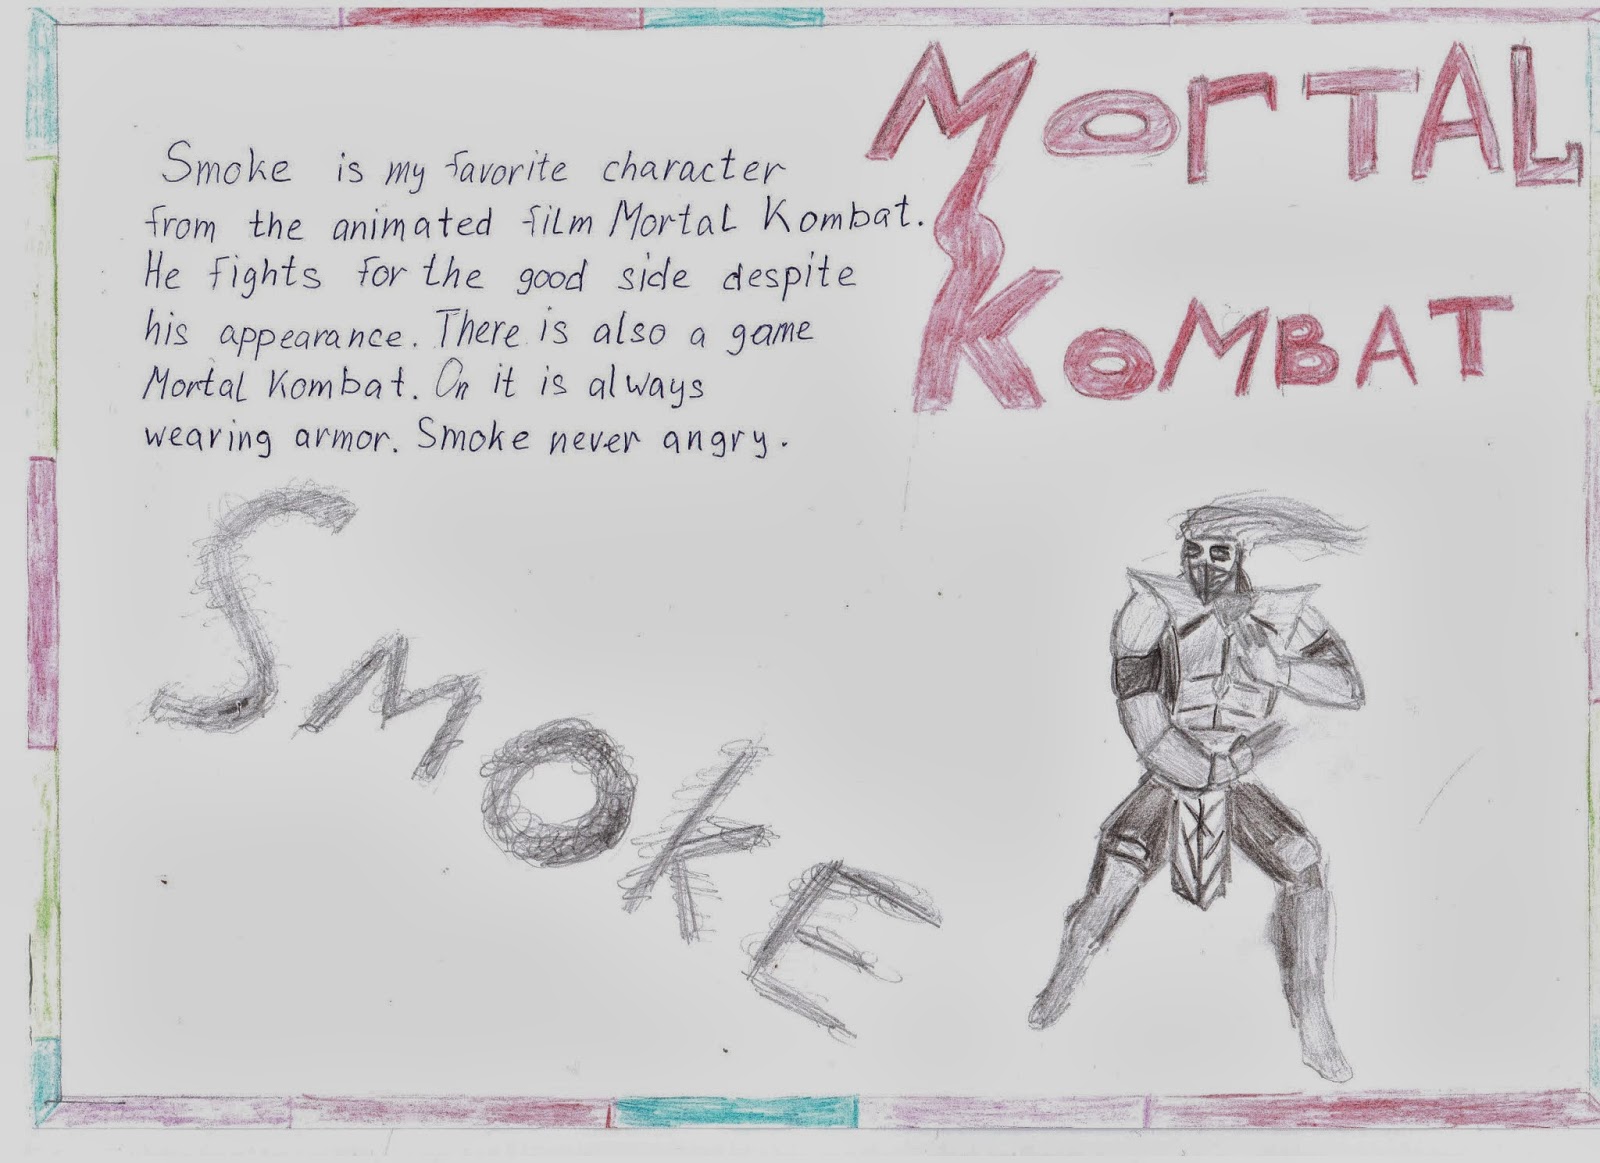 Mortal
Kombat
Smoke is my favorite character
from the animated film Mortal Kombat.
He fights for the good side despite
his appearance. There is also a game
Mortal Kombat. On it is always
wearing armor. Smoke never angry.
Smoke